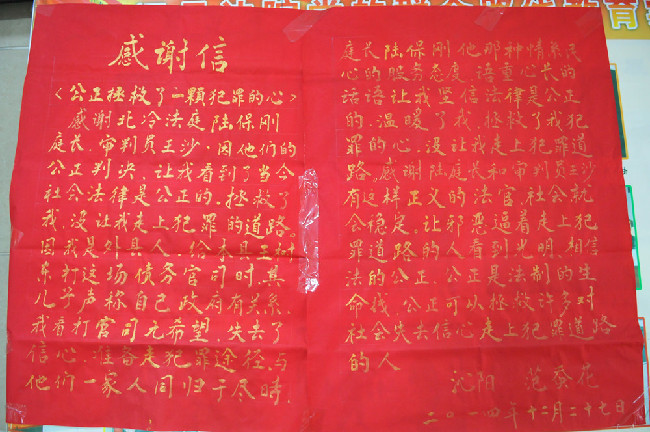 感谢信
〈公正拯救了一顆犯罪的心〉
感谢北冷法庭陆保刚
庭长、审判员王沙,因他们的
公正判决,让我看到了当今
社会法律是公正的,拯救了
我,没让我走上犯罪的道路。
因我是外县人,给本县王村
打这场债务官司时,其
儿子声称自己政府有关系,
我看打官司无希望,失去了
信心,准备走犯罪途径,与
他们一家人同归于尽時,
庭长陆保刚他那种情系民
心的服务态度,语重心长的
话语让我坚信法律是公正
的,温暖了我,拯救了我犯
罪的心,没让我走上犯罪道
路,感谢陆庭长和审判员王沙
有这样正义的法官,社会就
会稳定,让邪恶逼着走上犯
罪道路的人看到光明,相信
法的公正,公正是法制的生
命线,公正可以拯救许多对
社会失去信心走上犯罪道路
的人
沁阳 范葵花
二〇一四年十二月二十七日